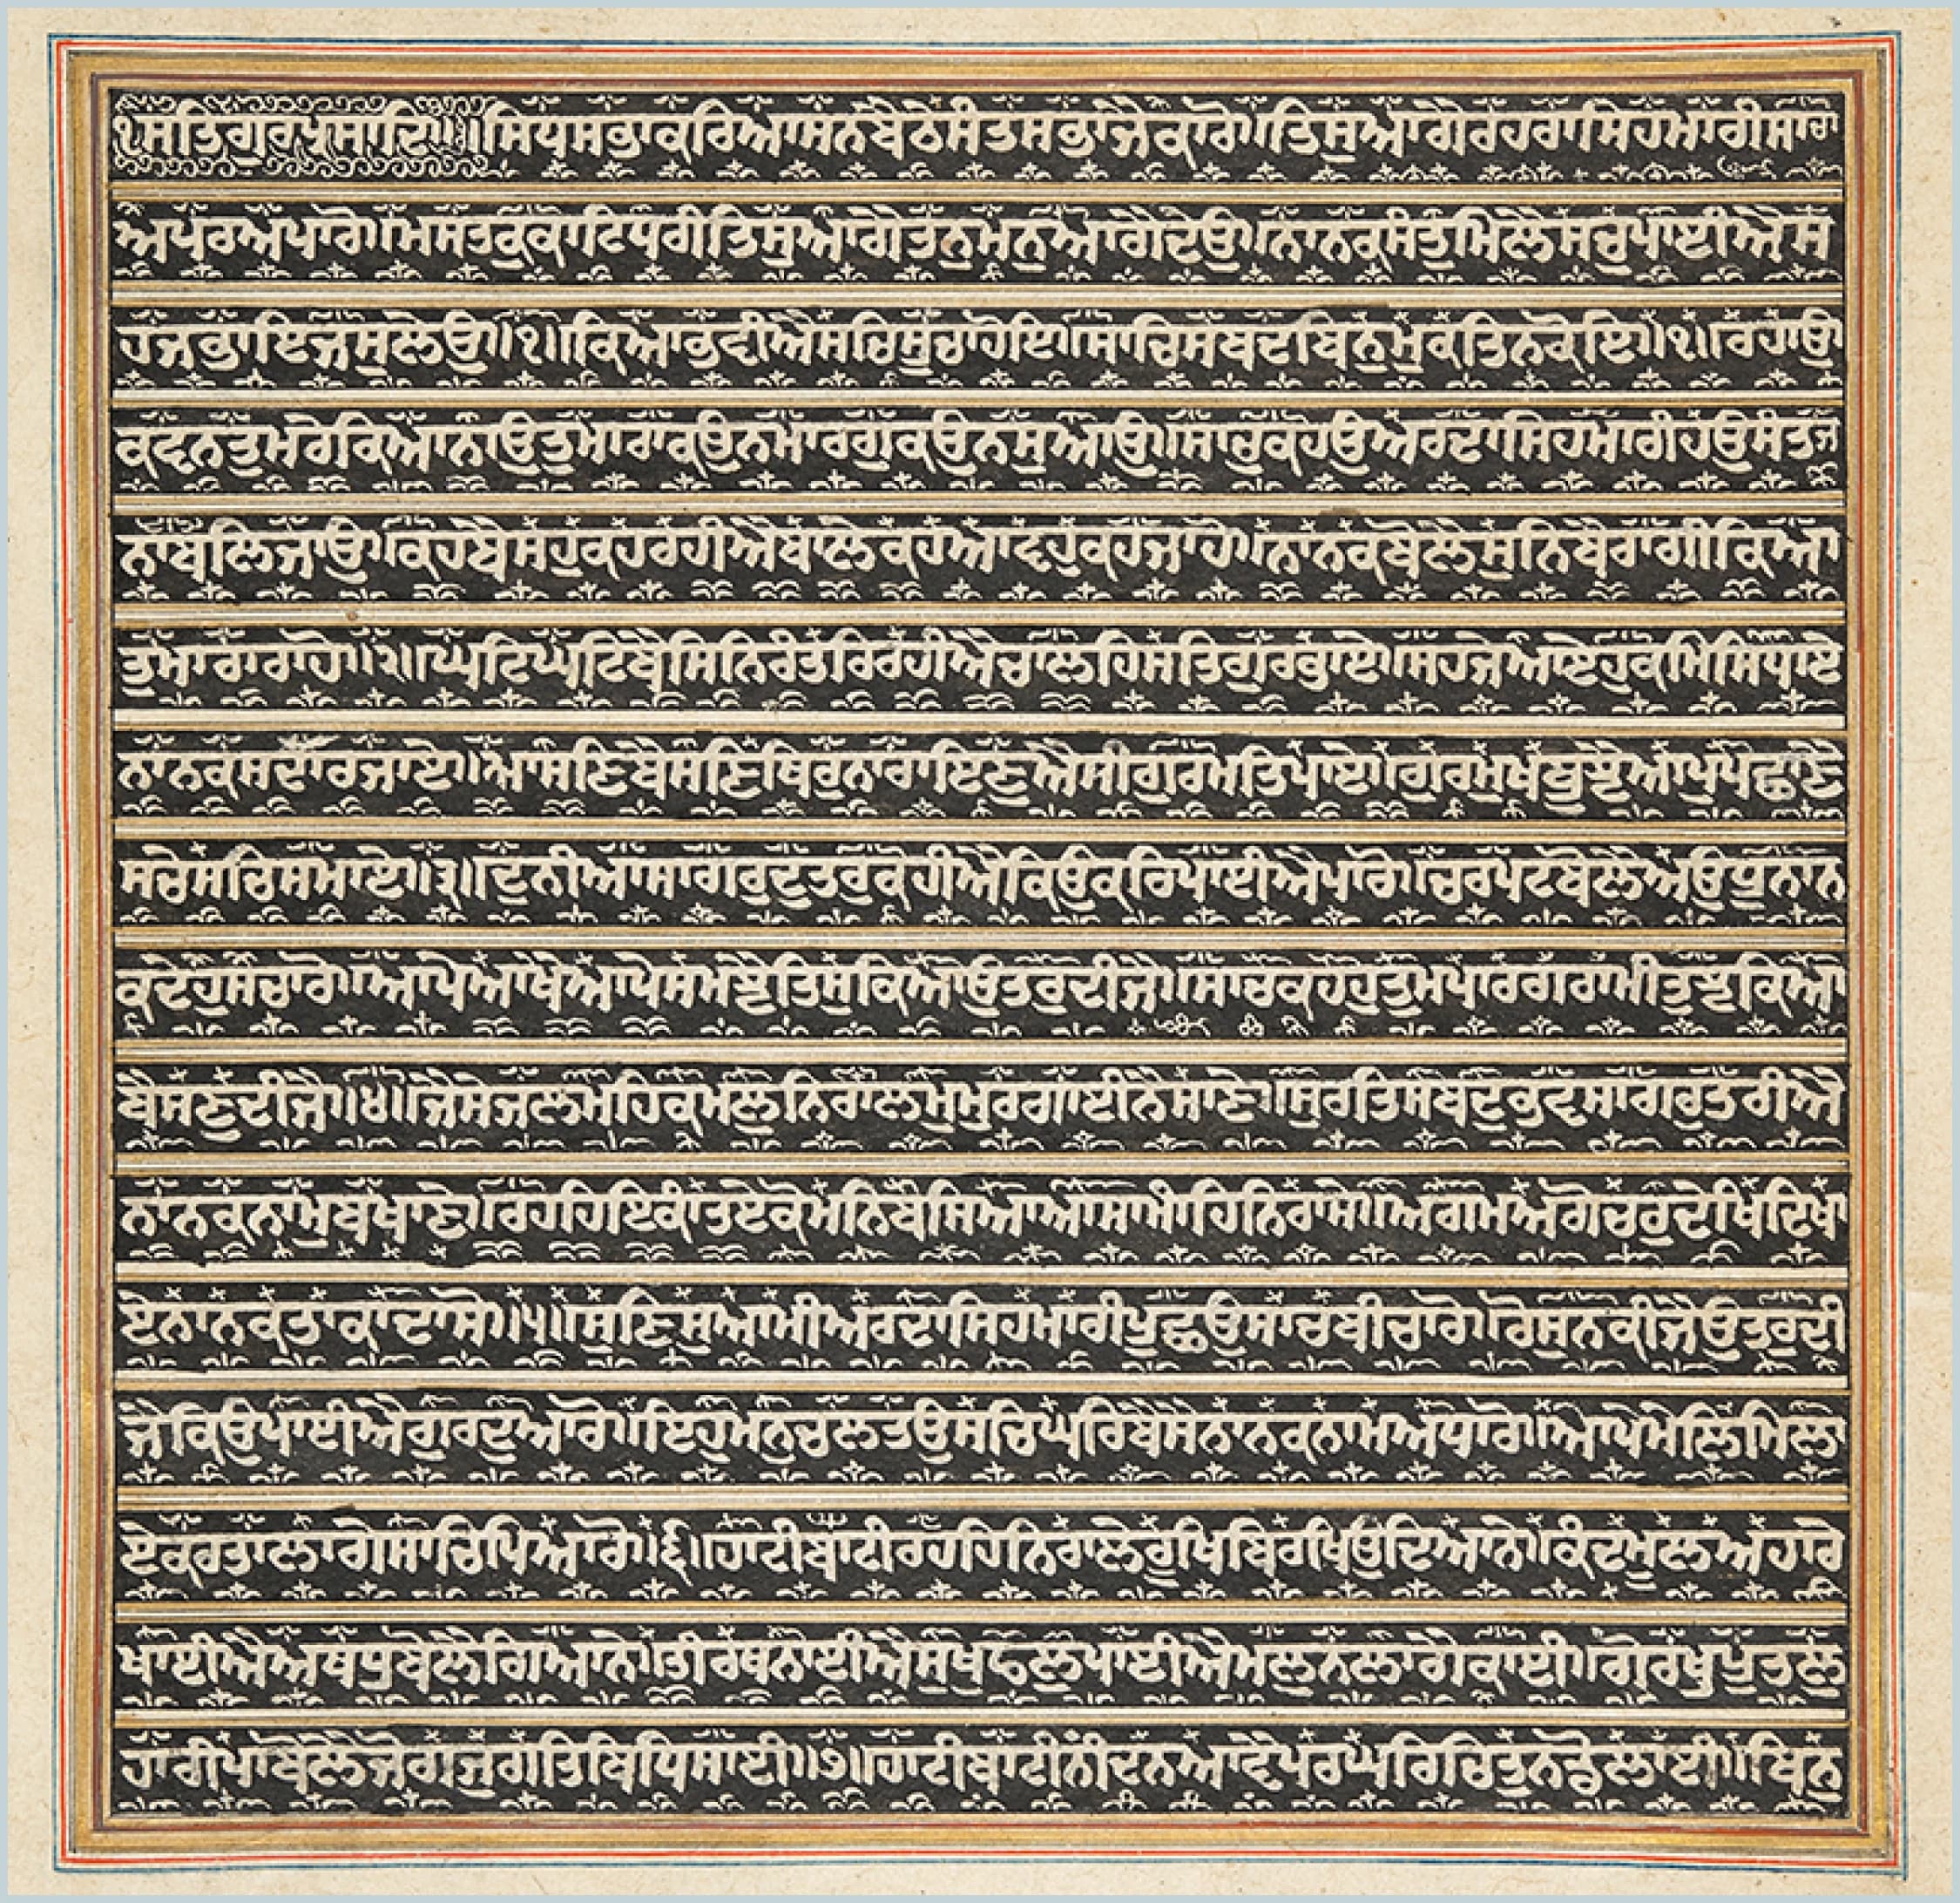 ੧ਸਤਿਗੁਰਪ੍ਰਸਾਦਿ॥॥ਸਿਧਸਭਾਕਰਿਆਸਨਬੈਠੇਸੰਤਸਭਾਜੈਕਾਰੋ॥ਤਿਸੁਆਗੈਰਹਰਾਸਿਹਮਾਰੀਸਾਚਾ
ਅਪਰਅਪਾਰੋ॥ਮਸਤਕੁਕਾਟਿਧਰੀਤਿਸੁਆਗੈਤਨੁਮਨੁਆਗੈਦੇਉ॥ਨਾਨਕਸੰਤੁਮਿਲੈਸਚੁਪਾਈਐਸ
ਹਜਭਾਇਜਸੁਲੇਉ॥੧॥ਕਿਆਭਵੀਐਸਚਿਸੂਚਾਹੋਇ॥ਸਾਚਿਸਬਦਬਿਨੁਮੁਕਤਿਨਕੋਇ॥੧॥ਰਹਾਉ
ਕਵਨਤੁਮਰੇਕਿਆਨਾਉਤੁਮਾਰਾਕਉਨਮਾਰਗੁਕਉਨਸੁਆਉ॥ਸਾਚੁਕਹੋਉਅਰਦਾਸਿਹਮਾਰੀਹਉਸੰਤਜ
ਨਾਬਲਿਜਾਉ॥ਕਹਬੈਸਹੁਕਹਰਹੀਐਬਾਲੇਕਹਆਵਹੁਕਹਜਾਹੋ॥ਨਾਨਕਬੋਲੈਸੁਨਿਬੈਰਾਗੀਕਿਆ
ਤੁਮਾਰਾਰਾਹੋ॥੨॥ਘਟਿਘਟਿਬੈਸਿਨਿਰੰਤਰਿਰਹੀਐਚਾਲਹਿਸਤਿਗੁਰਭਾਏ॥ਸਹਜੇਆਏਹੁਕਮਿਸਿਧਾਏ
ਨਾਨਕਸਦਾਰਜਾਏ॥ਆਸਣਿਬੈਸਣਿਥਿਰੁਨਾਰਾਇਣੁਐਸੀਗੁਰਮਤਿਪਾਏ॥ਗੁਰਮੁਖਬੁਝੈਆਪੁਪਛਾਣੈ
ਸਚੇਸਚਿਸਮਾਏ॥੩॥ਦੁਨੀਆਸਾਗਰੁਦੁਤਰੁਕਹੀਐਕਿਉਕਰਿਪਾਈਐਪਾਰੋ॥ਚਰਪਟਬੋਲੈਅਉਧੂਨਾਨ
ਕਦੇਹੁਸਚਾਰੋ॥ਆਪੇਆਖੇਆਪੇਸਮਝੈਤਿਸੁਕਿਆਉਤਰੁਦੀਜੈ॥ਸਾਚਕਹਹੁਤੁਮਪਾਰਗਰਾਮੀਤੁਝੁਕਿਆ
ਬੈਸਣੁਦੀਜੈ॥੪॥ਜੈਸੇਜਲਮਹਿਕਮਲੁਨਿਰਾਲਮੁਮੁਰਗਾਈਨੈਸਾਣੇ॥ਸੁਰਤਿਸਬਦੁਭਵਸਾਗਰੁਤਰੀਐ
ਨਾਨਕਨਾਮੁਬਖਾਣੇ॥ਰਹਹਿਇਕਾਂਤਏਕੋਮਨਿਬਸਿਆਆਸਾਮਾਹਿਨਿਰਾਸੋ॥ਅਗਮਅਗੋਚਰੁਦੇਖਿਦਿਖਾ
ਏਨਾਨਕੁਤਾਕਾਦਾਸੋ॥੫॥ਸੁਣਿਸੁਆਮੀਅਰਦਾਸਿਹਮਾਰੀਪੂਛਉਸਾਚਬੀਚਾਰੋ॥ਰੋਸੁਨਕੀਜੈਉਤਰੁਦੀ
ਜੈਕਿਉਪਾਈਐਗੁਰਦੁਆਰੋ॥ਇਹੁਮਨੁਚਲਤਉਸਚਿਘਰਿਬੈਸੈਨਾਨਕਨਾਮਅਧਾਰੋ॥ਆਪੇਮੇਲਿਮਿਲਾ
ਏਕਰਤਾਲਾਗੇਸਾਚਿਪਿਆਰੋ॥੬॥ਹਾਟੀਬਾਟੀਰਹਹਿਨਿਰਾਲੇਰੂਖਿਬਿਰਖਿਉਦਿਆਨੇ॥ਕੰਦਮੂਲਅਹਾਰੋ
ਖਾਈਐਅਉਧੂਬੋਲੈਗਿਆਨੇ॥ਤੀਰਥਨਾਈਐਸੁਖੁਫਲੁਪਾਈਐਮੈਲੁਨਲਾਗੈਕਾਈ॥ਗੋਰਖਪੂਤਲੁ
ਹਾਰੀਪਾਬੋਲੈਜੋਗਜੁਗਤਿਬਿਧਿਸਾਈ॥੭॥ਹਾਟੀਬਾਟੀਨੀਦਨਆਵੈਪਰਘਰਿਚਿਤੁਨਡੋਲਾਈ॥ਬਿਨੁ